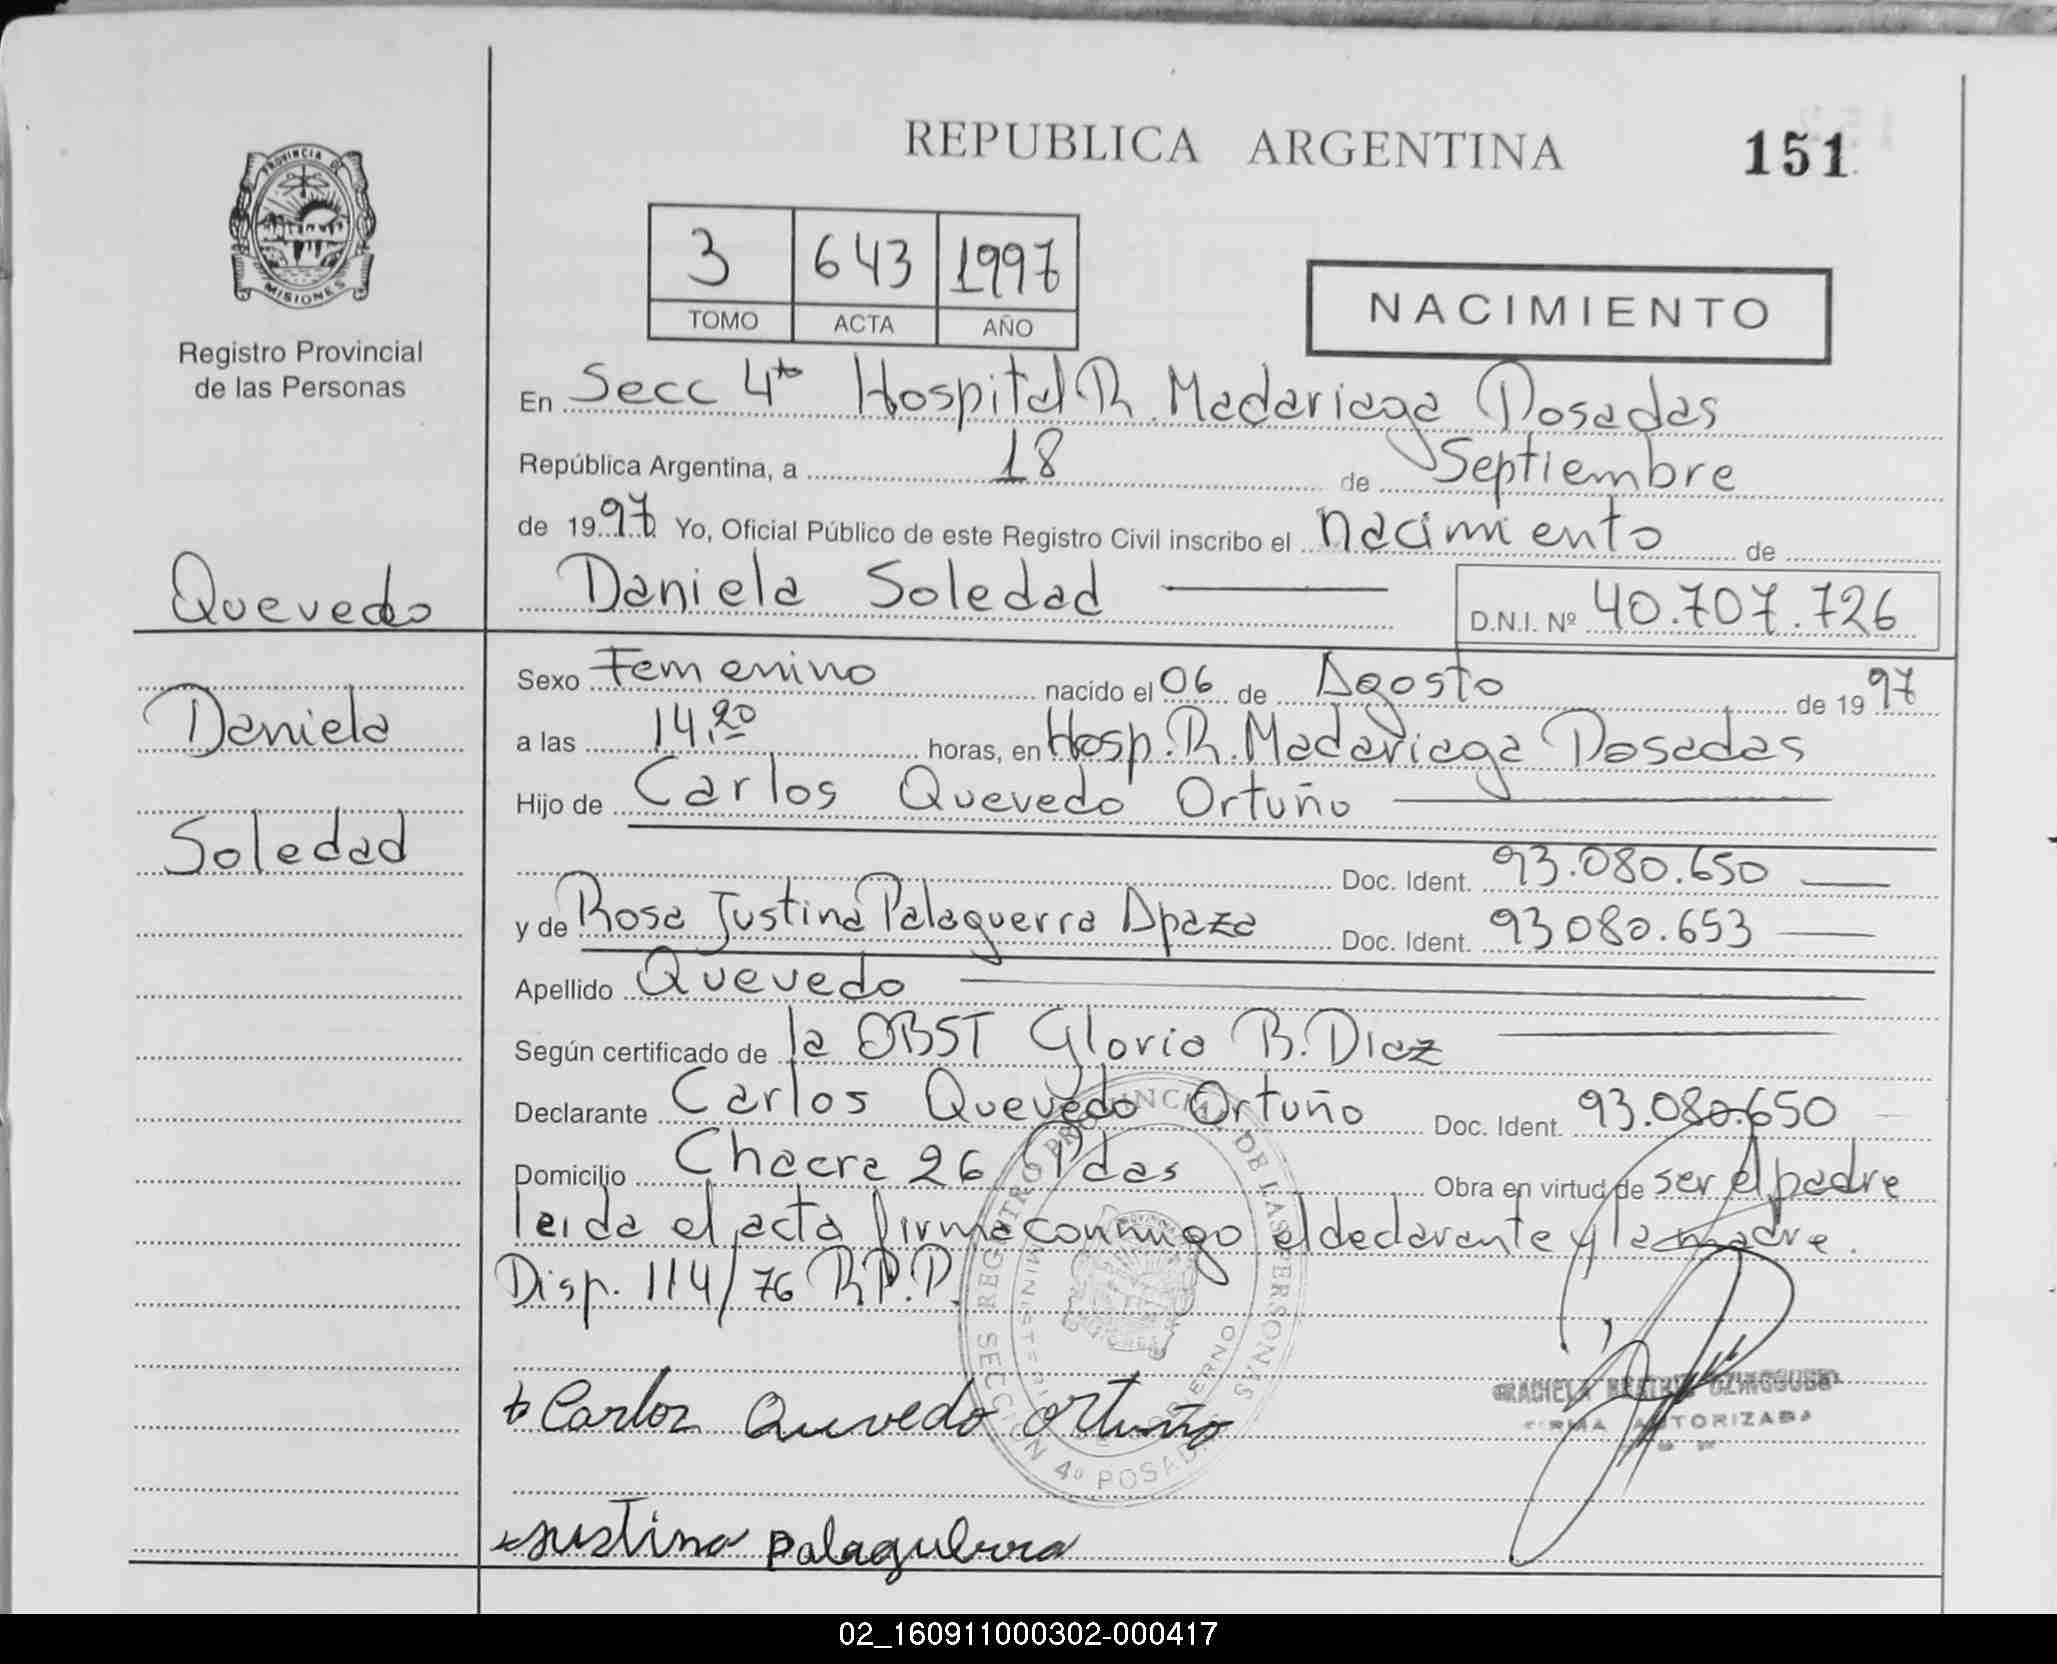 REPUBLICA ARGENTINA 151
PROVINCIA DE MISIONES
3 643 1997
TOMO ACTA AÑO
NACIMIENTO
Registro Provincial
de las Personas
En Secc 4ta Hospital R. Madariaga Posadas
República Argentina, a 18 de Septiembre
de 1997 Yo, Oficial Público de este Registro Civil inscribo el nacimiento de
Quevedo
Daniela Soledad
D.N.I. Nº 40.707.726
Daniela
Soledad
Sexo Femenino nacido el 06 de Agosto de 1997
a las 14,20 horas, en Hosp. R. Madariaga Posadas
Hijo de Carlos Quevedo Ortuño
Doc. Ident. 93.080.650
y de Rosa Justina Palaguerra Apaza Doc. Ident. 93080.653
Apellido Quevedo
Según certificado de la OBST Gloria B. Diaz
Declarante Carlos Quevedo Ortuño Doc. Ident. 93.080.650
Domicilio Chacra 26 Pdas Obra en virtud de ser el padre
leida el acta firma conmigo el declarante y la madre.
Disp. 114/76 R.P.P.
REGISTRO PROVINCIAL DE LAS PERSONAS
SECCIÓN 4º POSADAS
MINISTERIO DE GOBIERNO
Carlos Quevedo Ortuño
GRACIELA BEATRIZ
FIRMA AUTORIZADA
Justina Palaguerra
02_160911000302-000417